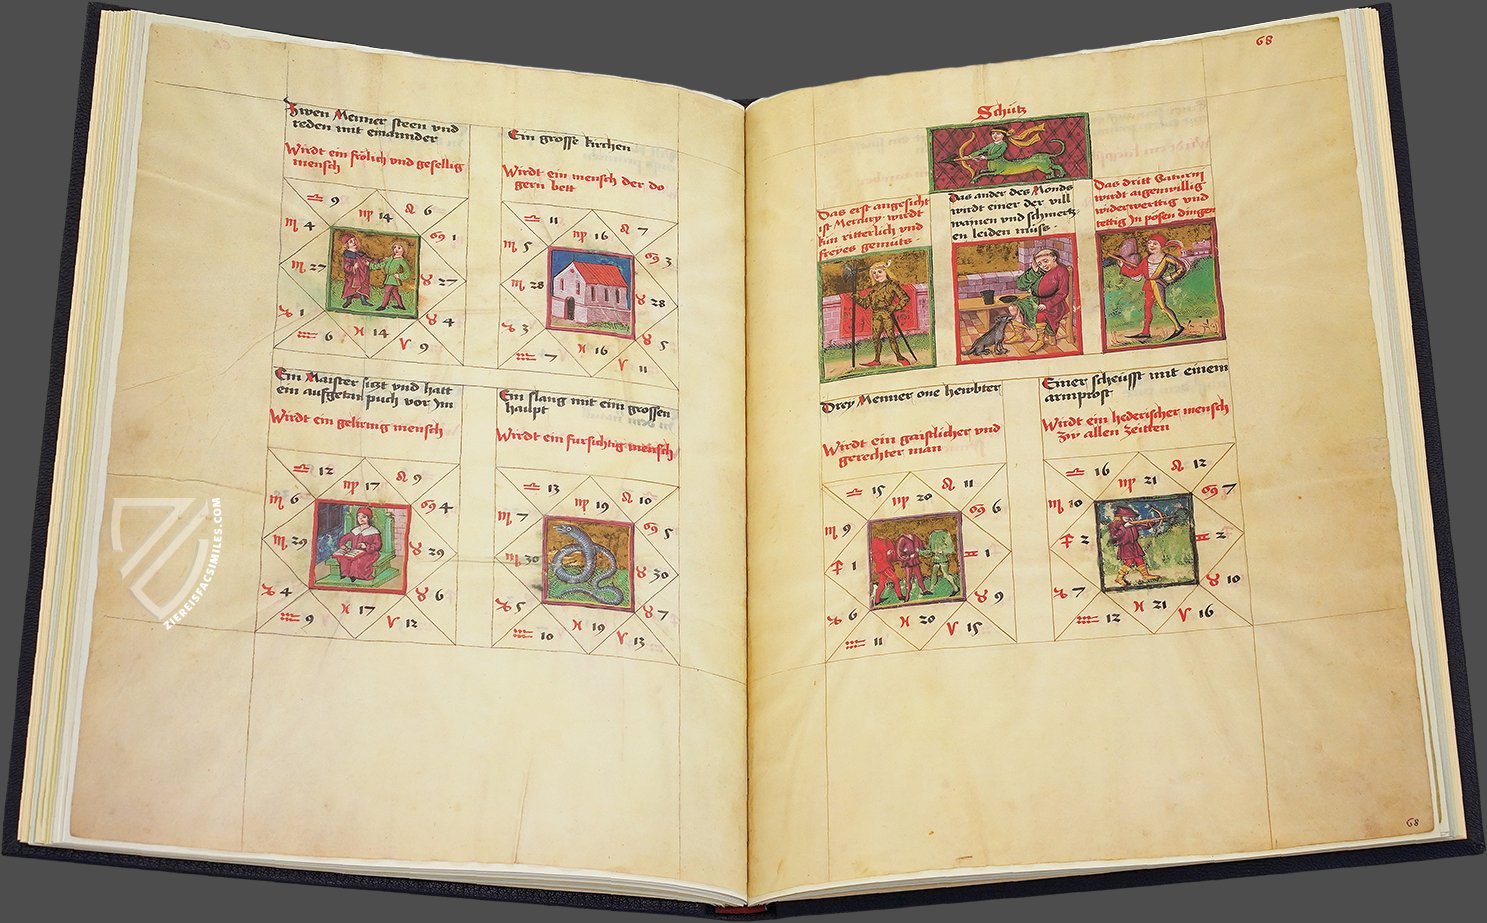 Zwen Menner steen vnd
reden mit einannder
Wirdt ein frölich vnd gesellig
mensch
♎ 9 ♍ 14 ♌ 6
♏ 4 ♋ 1
♏ 27 ♉ 27
♑ 1 ♉ 4
♒ 6 ♓ 14 ♈ 9
Ein grosse kirchen
Wirdt ein mensch der do
gern bett
♎ 11 ♍ 16 ♌ 7
♏ 5 ♋ 3
♏ 28 ♉ 28
♑ 3 ♉ 5
♒ 7 ♓ 16 ♈ 11
Ein Maister sitzt vnd hatt
ein aufgetan puch vor Im
Wirdt ein gelirnig mensch
♎ 12 ♍ 17 ♌ 9
♏ 6 ♋ 4
♏ 29 ♉ 29
♑ 4 ♉ 6
♒ 9 ♓ 17 ♈ 12
Ein slang mit eim grossen
haupt
Wirdt ein fursichtig mensch
♎ 13 ♍ 19 ♌ 10
♏ 7 ♋ 5
♏ 30 ♉ 30
♑ 5 ♉ 7
♒ 10 ♓ 19 ♈ 13
68
Schütz
Das erst angesicht
ist Mercury wirdt
kün ritterlich vnd
freyes gemuts.
Das ander des Monds
wirdt einer der vill
wainen vnd schmertz
en leiden muss.
Das dritt Saturni
wirdt aigenwillig
widerwerttig vnd
tettig In posen dingen
Drey Menner one hewbter
Wirdt ein gaistlicher vnd
gerechter man
♎ 15 ♍ 20 ♌ 11
♏ 9 ♋ 6
♐ 1 ♊ 1
♑ 6 ♉ 9
♒ 11 ♓ 20 ♈ 15
Einer scheusst mit einem
armprost
Wirdt ein hederischer mensch
zw allen zeitten
♎ 16 ♍ 21 ♌ 12
♏ 10 ♋ 7
♐ 2 ♊ 2
♑ 7 ♉ 10
♒ 12 ♓ 21 ♈ 16
68
ZIEREISFACSIMILES.COM